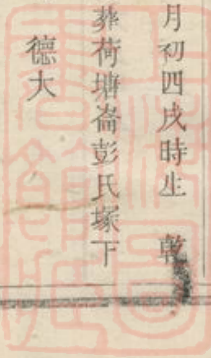 月初四戌時生　乾
葬荷塘崙彭氏塚下
德大